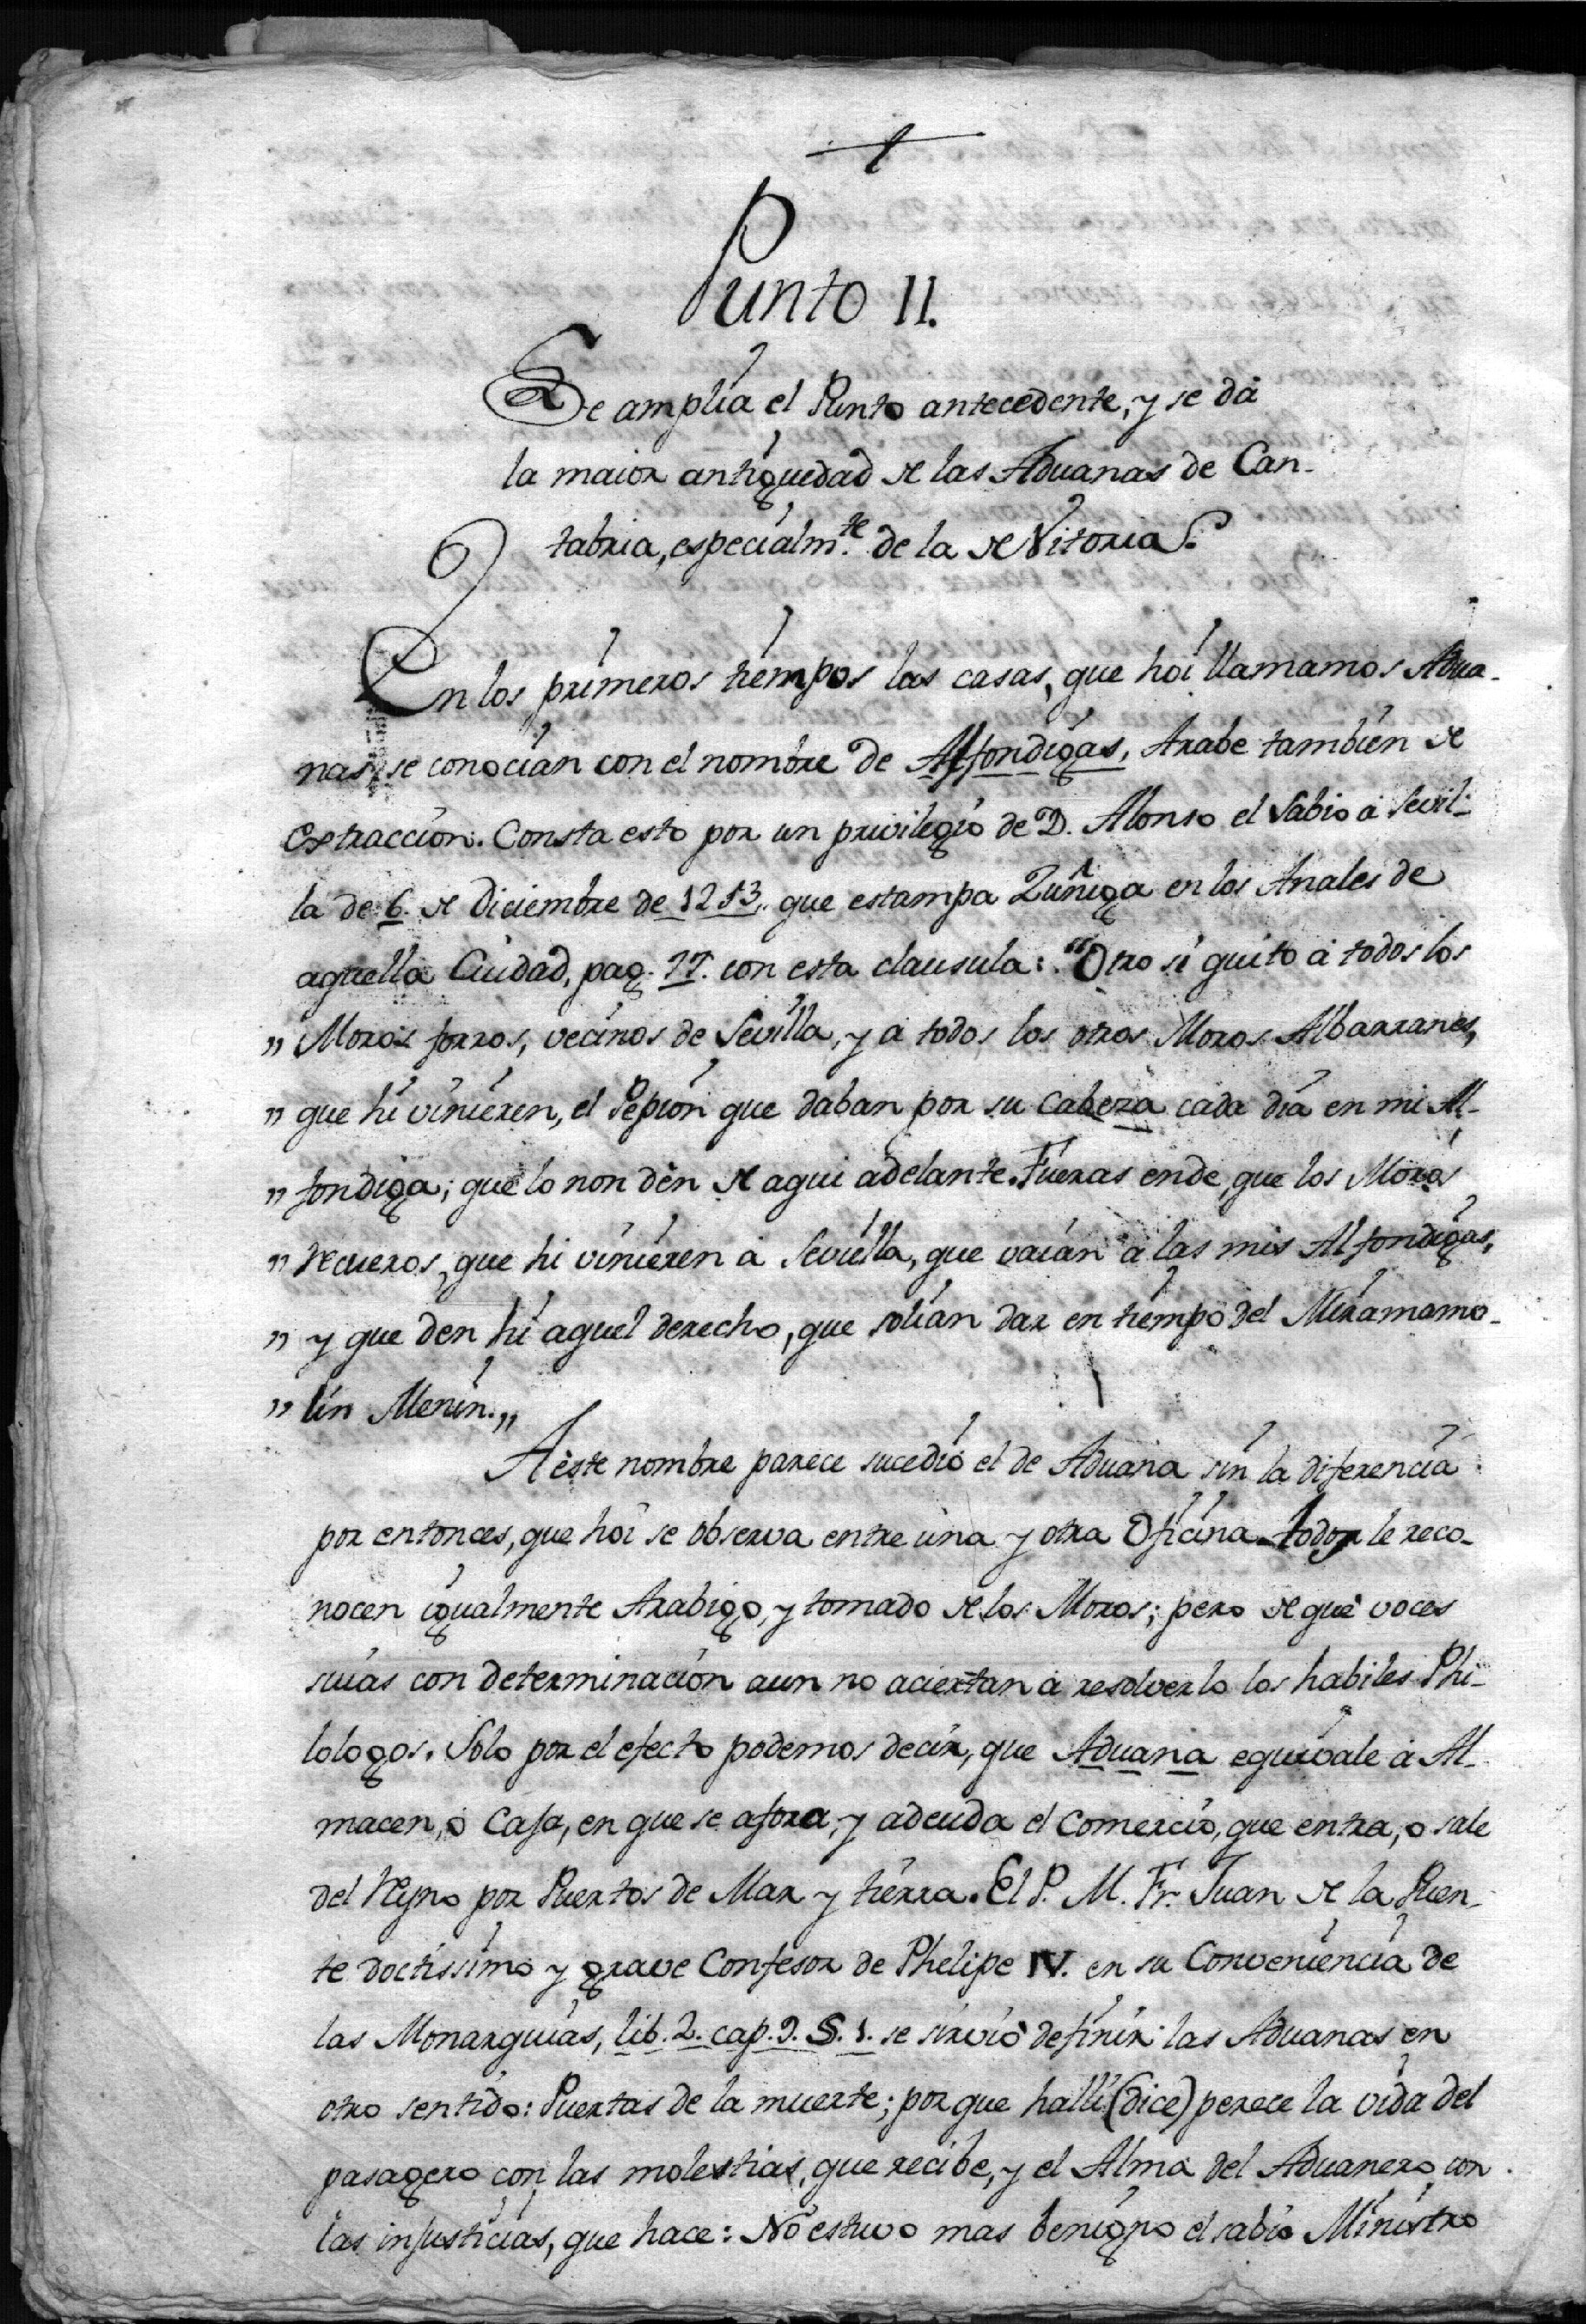 Punto II.
Se amplía el Punto antecedente, y se dà
la maior antiguedad de las Aduanas de Can-
tabria, especialm.te de la de Vitoria.
En los primeros tiempos las casas, que hoi llamamos Adua-
nas, se conocian con el nombre de Alfondigas, Arabe tambien de
extraccion. Consta esto por un privilegio de D. Alonso el Sabio à Sevil-
la de 6. de Diciembre de 1253. que estampa Zuñiga en los Anales de
aquella Ciudad, pag. 77. con esta clausula: "Otro si quito à todos los
" Moros forros, vecinos de Sevilla, y à todos los otros Moros Albarranes,
" que hi vinieren, el Pepion que daban por su cabeza cada dia en mi Al-
" fondiga; que lo non dèn de aqui adelante. Fueras ende, que los Moros
" recueros, que hi vinieren à Seviella, que vaian à las mis Alfondigas,
" y que den hi aquel derecho, que solian dar en tiempo del Miramamo-
" lin Menin. "
A este nombre parece sucediò el de Aduana sin la diferencia
por entonces, que hoi se observa entre una y otra Oficina. Todos le reco-
nocen igualmente Arabigo, y tomado de los Moros; pero de què voces
suias con determinacion aun no aciertan à resolverlo los habiles Phi-
lologos. Solo por el efecto podemos decir, que Aduana equivale à Al-
macen, o Casa, en que se afora, y adeuda el Comercio, que entra, o sale
del Reyno por Puertos de Mar y tierra. El P. M. Fr. Juan de la Puen-
te doctissimo y grave Confesor de Phelipe IV. en su Conveniencia de
las Monarquias, lib. 2. cap. 9. §. 1. se sirviò definir las Aduanas en
otro sentido: Puertas de la muerte; por que halli (dice) perece la vida del
pasagero con las molestias, que recibe, y el Alma del Aduanero con
las injusticias, que hace: No estuvo mas benigno el sabio Ministro